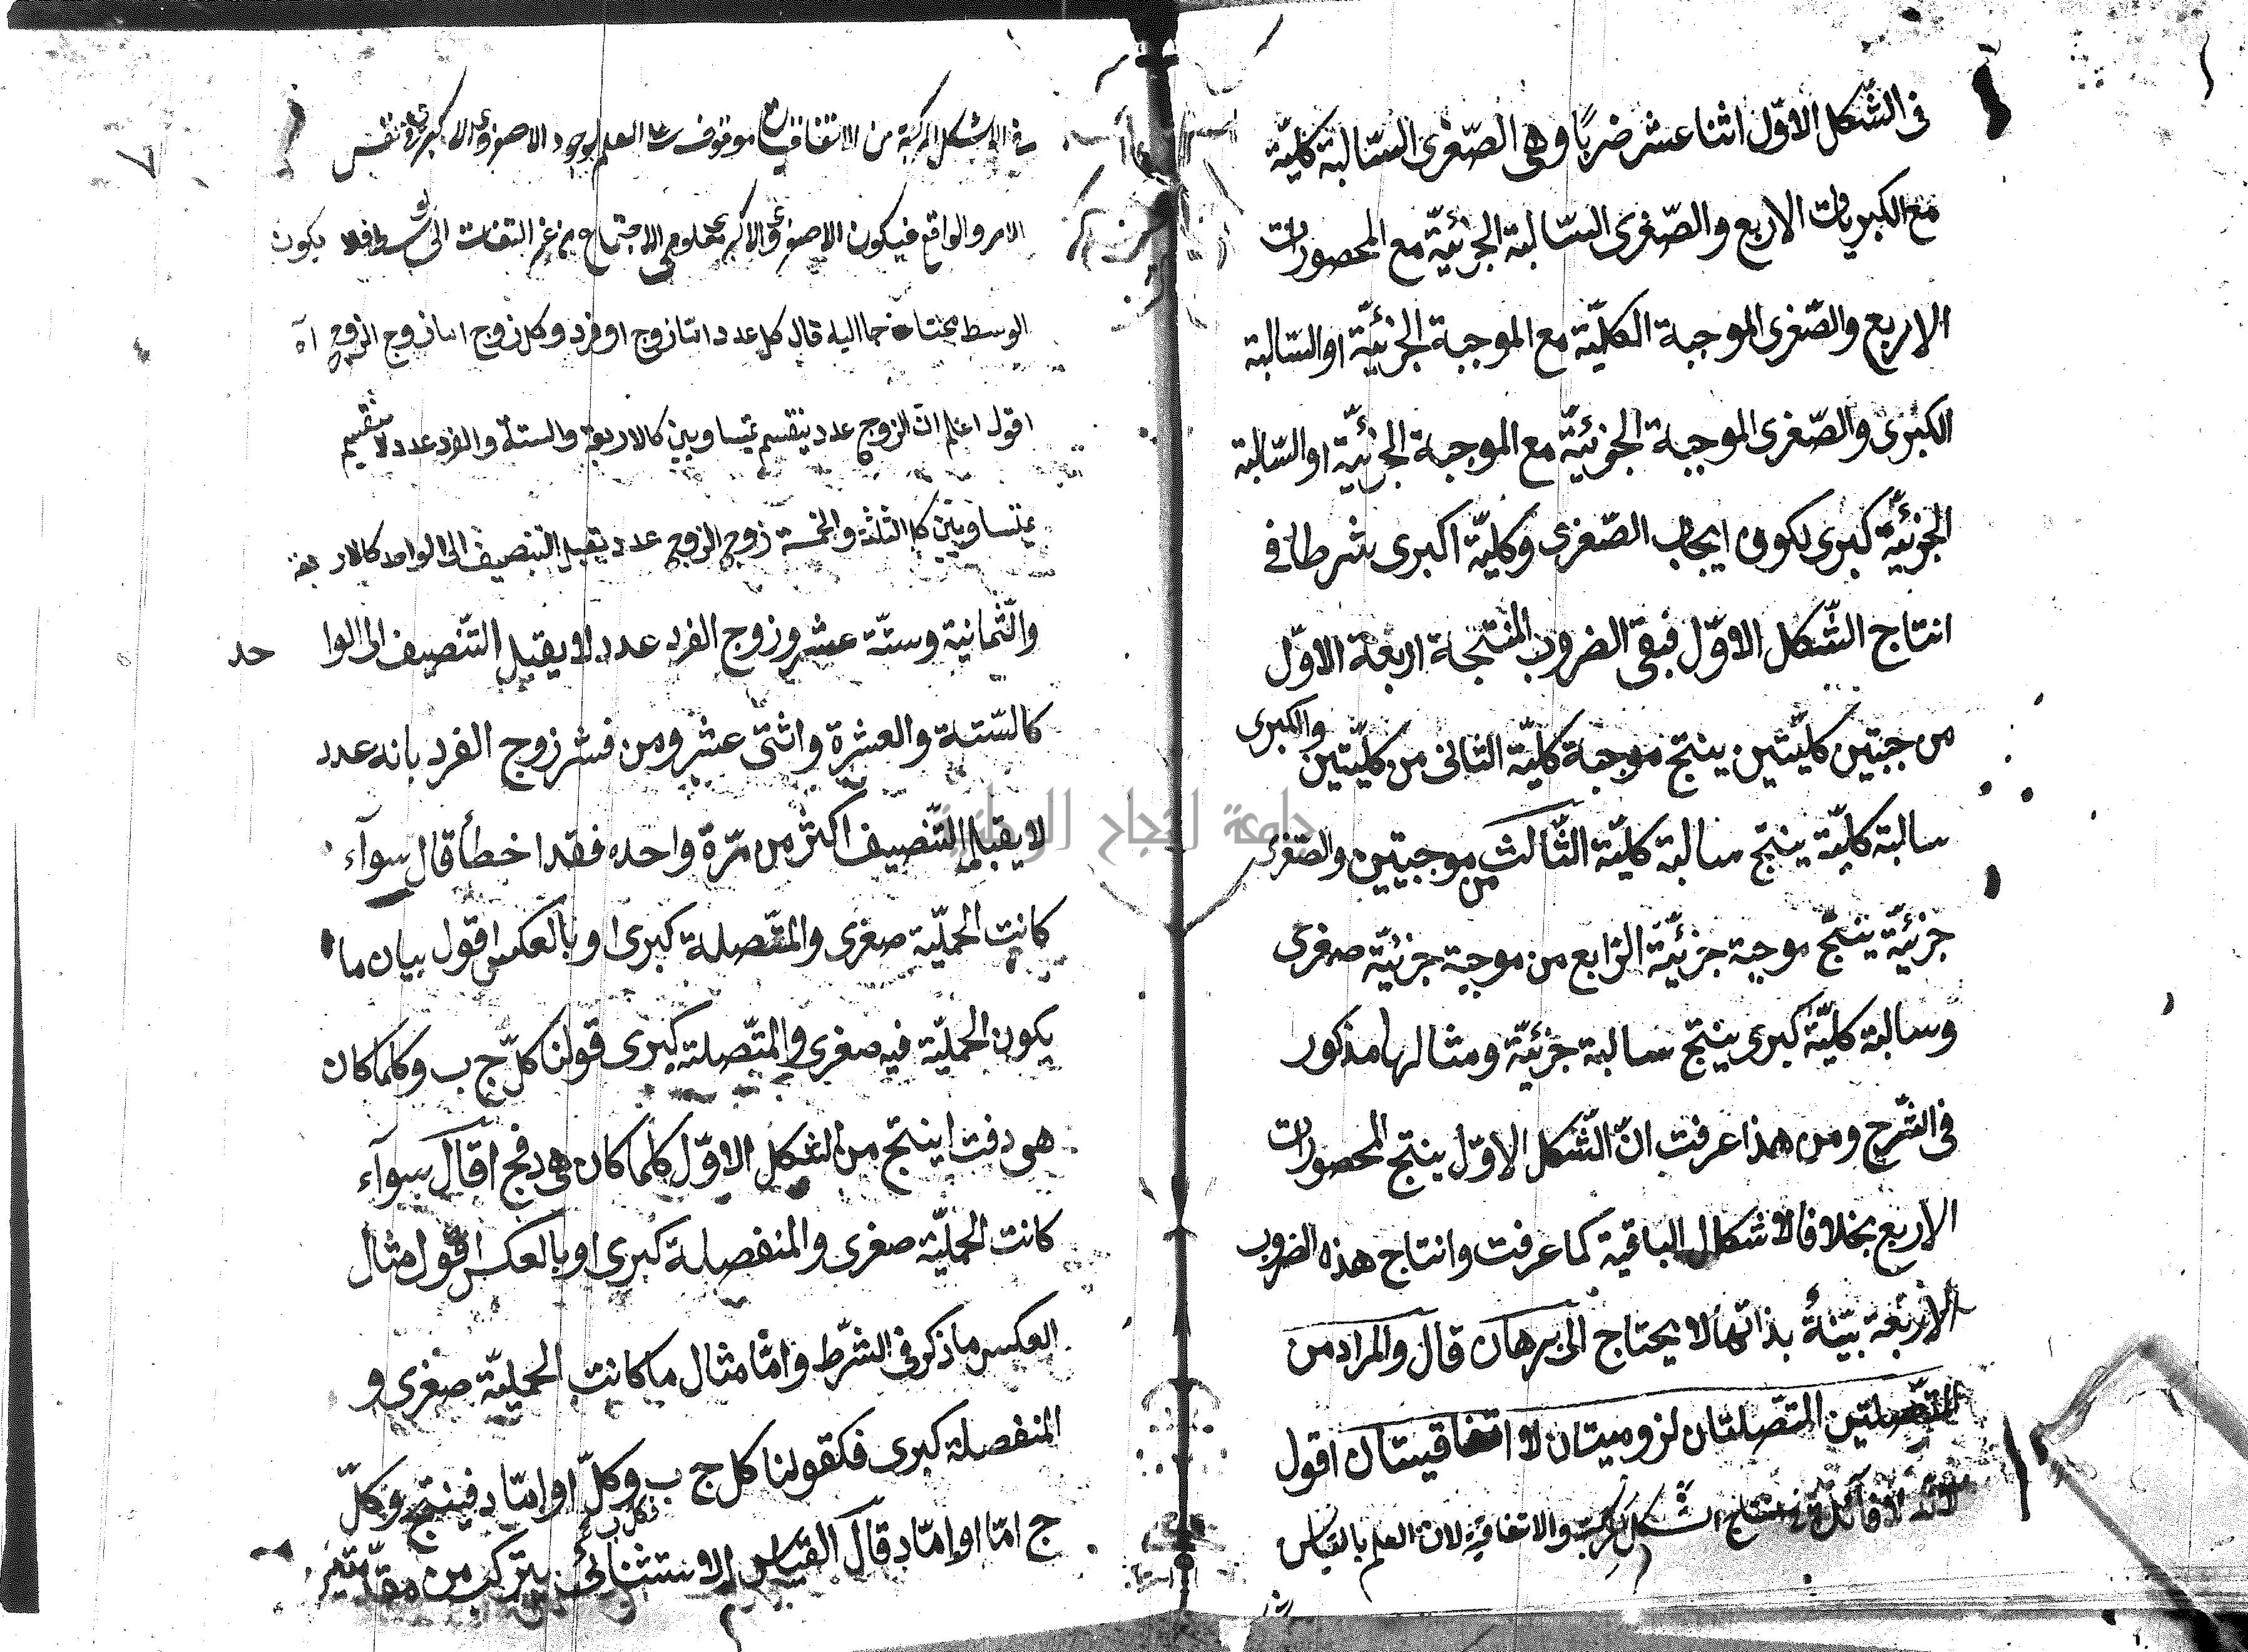 فى الشّكل الاوّل اثنا عشر ضربًا وهى الصّغرى السّالبة كليّة
مع الكبريات الاربع والصّغرى السّالبة الجزئيّة مع المحصورات
الاربع والصّغرى الموجبة الكليّة مع الموجبة الجزئيّة او السّالبة
الكبرى والصّغرى الموجبة الجزئيّة مع الموجبة الجزئيّة او السّالبة
الجزئيّة كبرى لكون ايجاب الصّغرى وكليّة اكبرى شرطا فى
انتاج الشّكل الاوّل فبقى الضروب المنتجة اربعة الاوّل
من جبتين كليّتين ينتج موجبة كليّة الثانى من كليّتين والكبرى
سالبة كليّة ينتج سالبة كليّة الثّالث من موجبتين والصّغرى
جزئيّة ينتج موجبة جزئيّة الرّابع من موجبة جزئيّة صغرى
وسالبة كليّة كبرى ينتج سالبة جزئيّة ومثالها مذكور
فى الشّرح ومن هذا عرفت انّ الشّكل الاوّل ينتج المحصورات
الاربع بخلاف الاشكال الباقية كما عرفت وانتاج هذه الضروب
الاربعة بيّنة بذاتها لا يحتاج الى برهان قال والمراد من
المتّصلتين المتّصلتان لزوميتان لا اتفاقيتان اقول
لانه لا فائدة فى انتاج الشكل المركبة والاتفاقية لان العلم بالقياس
فى الاشكل المركبة من الاتفاقية موقوف على العلم بوجود الاصغر والاكبر فى نفس
الامر والواقع فيكون الاصغر والاكبر معلومى الاجتماع من غير التفات الى وسط فلا يكون
الوسط محتاجا اليه قال كل عدد امّا زوج او فرد وكل زوج اما زوج الزوج اه
اقول اعلم انّ الزوج عدد ينقسم بمتساويين كالاربعة والستة والفرد عدد لا ينقسم
بمتساويين كالثلثة والخمسة زوج الزوج عدد يقبل التنصيف الى الواحد كالاربعة
والثّمانية وستّة عشر وزوج الفرد عدد لا يقبل التّنصيف الى الواحد
كالسّتة والعشرة واثنى عشر ومن فسّر زوج الفرد بانه عدد
لا يقبل التّنصيف اكثر من مرّة واحده فقد اخطأ قال سوآء
كانت الحمليّة صغرى والمتّصلة كبرى او بالعكس اقول بيان ما
يكون الحمليّة فيه صغرى والمتّصلة كبرى قولنا كلّ ج ب وكلما كان
هى دفت ا ينتج من الشكل الاوّل كلما كان هى دفج ا قال سوآء
كانت الحمليّة صغرى والمنفصلة كبرى او بالعكس اقول مثال
العكس ما ذكر فى الشرّط وامّا مثال ما كانت الحمليّة صغرى و
المنفصلة كبرى فكقولنا كل ج ب وكلّ ا او امّا د فينتج وكلّ
فكل ب
ج امّا ا وامّا د قال القياس الاستثنائى يتركب من مقدّمتين
جامعة النجاح الوطنية